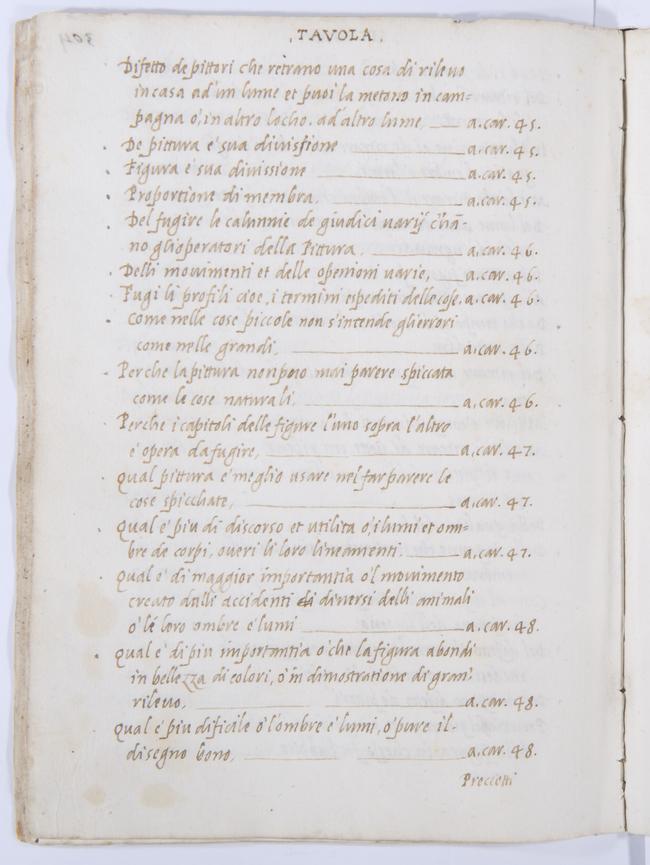 304
.TAVOLA.
Difetto de pittori che retrano una cosa di rilevo
in casa ad'un lume et puoi la metono in cam=
pagna o, in altro locho. ad altro lume, a. car. 45.
De pittura e sua divisione a. car. 45.
Figura e sua divissione a. car. 45.
Proportione di membra. a. car. 45.
Del fugire le calunnie de giudici varij c'hā-
no gli operatori della Pittura, a. car. 46.
Delli movimenti et delle openioni varie, a. car. 46.
Fugi li profili cioe, i termini espediti delle cose. a. car. 46.
Come nelle cose piccole non s'intende gli errori
come nelle grandi, a. car. 46.
Perche la pittura non puo mai parere spiccata
come le cose naturali, a. car. 46.
Perche i capitoli delle figure l'uno sopra l'altro
e' opera da fugire, a. car. 47.
Qual pittura e' meglio usare nel far parere le
cose spicchate, a. car. 47.
Qual e' piu di discorso et utilita o' i lumi et om=
bre de corpi, overi li loro lineamenti a. car. 47.
Qual e' di maggior importantia o'l movimento
creato dalli accidenti di diversi delli animali
o' le loro ombre e' lumi a. car. 48.
Qual e' di piu importantia o' che la figura abondi
in bellezza di colori, o' in dimostratione di gran'
rilevo, a. car. 48.
Qual e' piu dificile o' l'ombre e' lumi, o' pure il-
disegno bono, a. car. 48.
Precetti